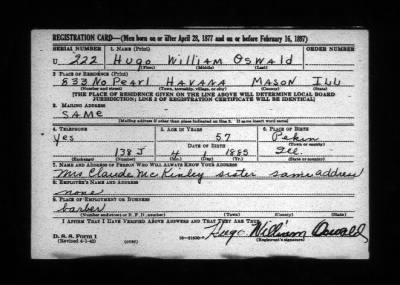 REGISTRATION CARD—(Men born on or after April 28, 1877 and on or before February 16, 1897)
SERIAL NUMBER 1. NAME (Print) ORDER NUMBER
U 222 Hugo William Oswald
(First) (Middle) (Last)
2. PLACE OF RESIDENCE (Print)
833 No Pearl HAVANA MASON ILL
(Number and street) (Town, township, village, or city) (County) (State)
[THE PLACE OF RESIDENCE GIVEN ON THE LINE ABOVE WILL DETERMINE LOCAL BOARD
JURISDICTION; LINE 2 OF REGISTRATION CERTIFICATE WILL BE IDENTICAL]
3. MAILING ADDRESS
SAME
[Mailing address if other than place indicated on line 2. If same insert word same]
4. TELEPHONE 5. AGE IN YEARS 6. PLACE OF BIRTH
Yes 57 Pekin
DATE OF BIRTH (Town or county)
138 J 4 1 1885 Ill.
(Exchange) (Number) (Mo.) (Day) (Yr.) (State or country)
7. NAME AND ADDRESS OF PERSON WHO WILL ALWAYS KNOW YOUR ADDRESS
Mrs Claude McKinley sister same address
8. EMPLOYER'S NAME AND ADDRESS
none
9. PLACE OF EMPLOYMENT OR BUSINESS
barber
(Number and street or R. F. D. number) (Town) (County) (State)
I AFFIRM THAT I HAVE VERIFIED ABOVE ANSWERS AND THAT THEY ARE TRUE.
D. S. S. Form 1 Hugo William Oswald
(Revised 4-1-42) (over) (Registrant's signature)